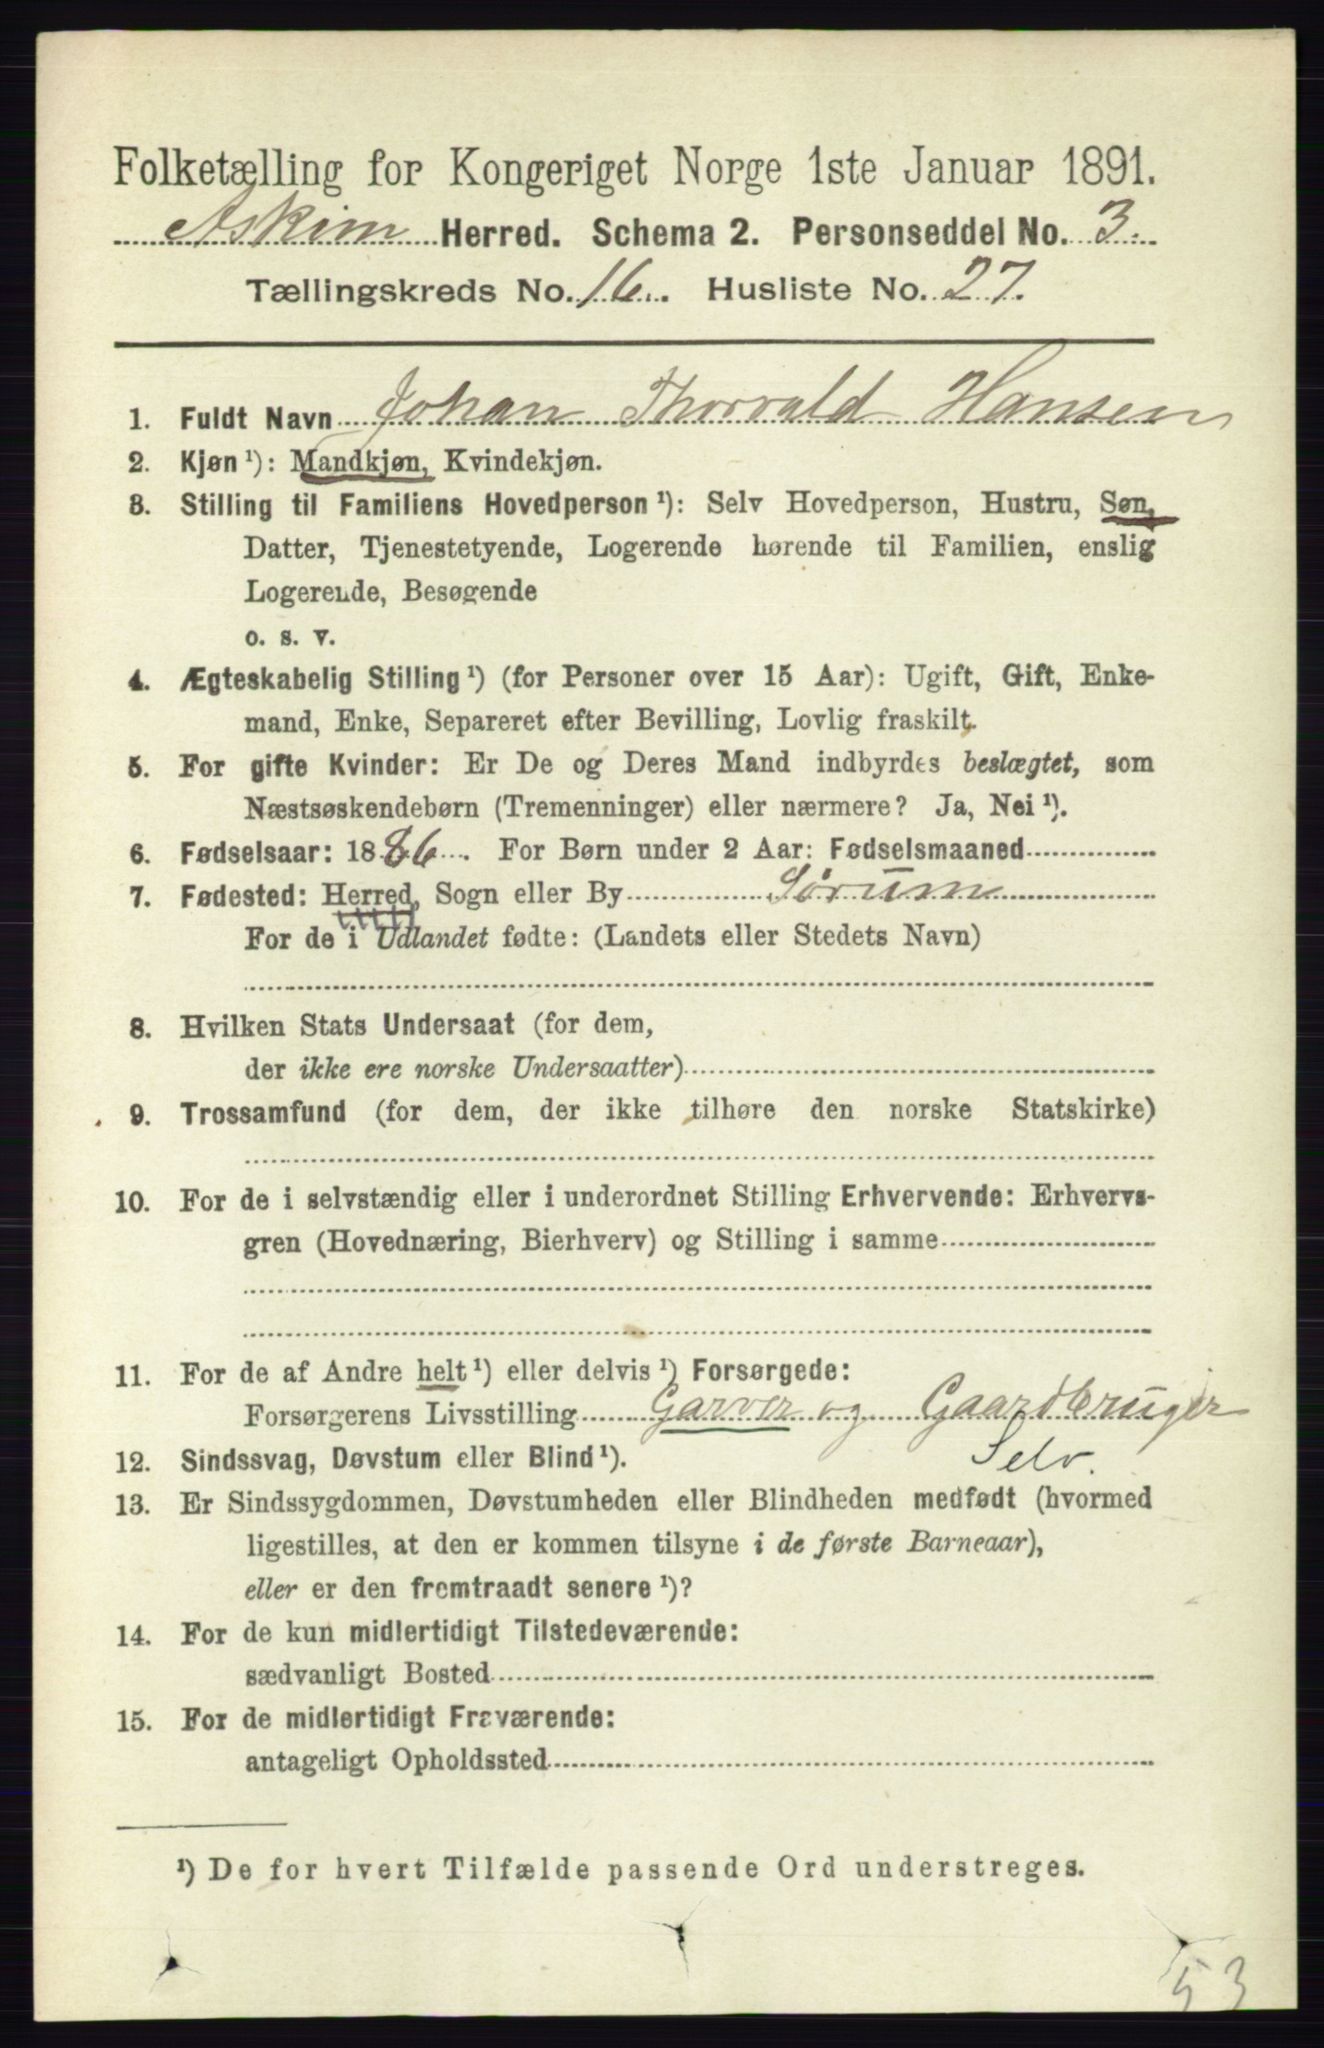 Folketælling for Kongeriget Norge 1ste Januar 1891.
Askim Herred. Schema 2. Personseddel No. 3.
Tællingskreds No. 16. Husliste No. 27.
1. Fuldt Navn Johan Thorvald Hansen
2. Kjøn ¹): Mandkjøn, Kvindekjøn.
3. Stilling til Familiens Hovedperson ¹): Selv Hovedperson, Hustru, Søn,
Datter, Tjenestetyende, Logerende hørende til Familien, enslig
Logerende, Besøgende
o. s. v.
4. Ægteskabelig Stilling ¹) (for Personer over 15 Aar): Ugift, Gift, Enke-
mand, Enke, Separeret efter Bevilling, Lovlig fraskilt.
5. For gifte Kvinder: Er De og Deres Mand indbyrdes beslægtet, som
Næstsøskendebørn (Tremenninger) eller nærmere? Ja, Nei ¹).
6. Fødselsaar: 1886. For Børn under 2 Aar: Fødselsmaaned
7. Fødested: Herred, Sogn eller By Sørum
For de i Udlandet fødte: (Landets eller Stedets Navn)
8. Hvilken Stats Undersaat (for dem,
der ikke ere norske Undersaatter)
9. Trossamfund (for dem, der ikke tilhøre den norske Statskirke)
10. For de i selvstændig eller i underordnet Stilling Erhvervende: Erhvervs-
gren (Hovednæring, Bierhverv) og Stilling i samme
11. For de af Andre helt ¹) eller delvis ¹) Forsørgede:
Forsørgerens Livsstilling Garver og Gaardbruger
Selv.
12. Sindssvag, Døvstum eller Blind ¹).
13. Er Sindssygdommen, Døvstumheden eller Blindheden medfødt (hvormed
ligestilles, at den er kommen tilsyne i de første Barneaar),
eller er den fremtraadt senere ¹)?
14. For de kun midlertidigt Tilstedeværende:
sædvanligt Bosted
15. For de midlertidigt Fraværende:
antageligt Opholdssted
¹) De for hvert Tilfælde passende Ord understreges.
53